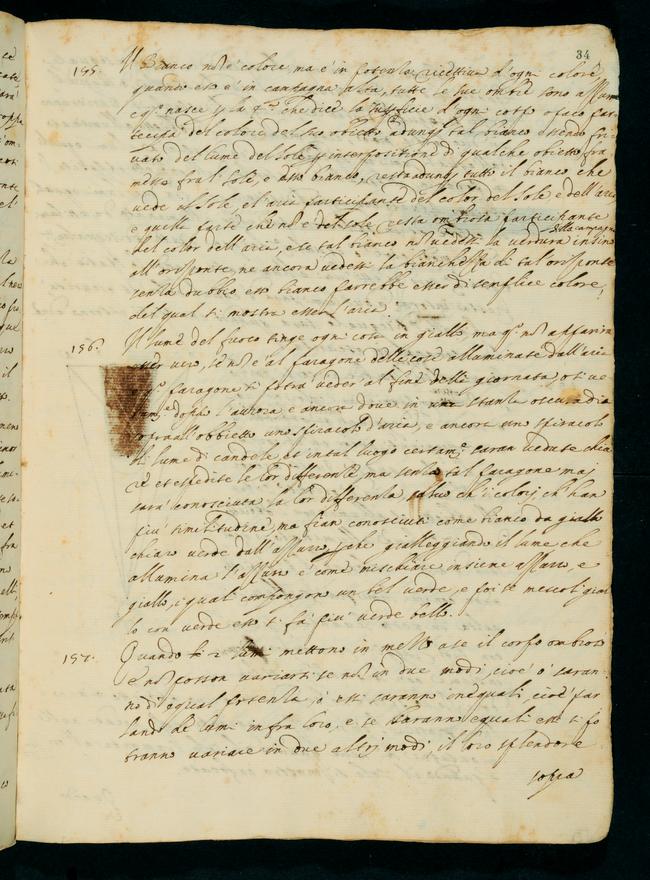 34
155. Il Bianco non è colore, ma è in potenza ricettiva d'ogni colore,
quando esso è in campagna alta, tutte le sue ombre sono azzurre
e q.o nasce p la q.ta che dice la superficie d'ogni corpo opaco par-
tecipa del colore del suo obietto adunq; tal bianco essendo pri-
vato del lume del sole p interpositione di qualche obietto fra
messo fra'l sole, e esso bianco, resta adunq; tutto il bianco che
vede il sole, e l'aria participante del color del sole e dell'aria
e quella parte che non è dal sole resta ombrosa participante
del color dell'aria, e se tal bianco non vedesse la verdura della campagna insino
all'orizonte, ne ancora vedesse la bianchezza di tal orizonte
senza dubbio esso bianco parrebbe esser di semplice colore,
del qual si mostra esser l'aria.
156. Il lume del fuoco tinge ogni cosa in giallo, ma q.o non apparirà
esser vero, se non è al paragone delle cose illuminate dall'aria
q.o paragone si potrà veder al fine della giornata, o si ve
dopo l'aurora e ancora dove in una stanza oscura dia
sopra all'obbietto uno spiracolo d'aria, e ancora uno spiracolo
di lume di candele et in tal luogo certam.e saran vedute chia
re et espedite le lor differenze, ma senza tal paragone mai
sarà conosciuta la lor differenza salvo ch'i colorj ch'han
più similitudine, ma fian conosciuti come bianco da giallo
chiaro verde dall'azzurro, p che gialleggiando il lume che
allumina l'azzurro è come mischiare insieme azzurro, e
giallo, i quali compongon un bel verde, e poi se mescoli gial-
lo con verde esso si fa più verde bello.
157. Quando 2 lumi mettono in mezzo a se il corpo ombroso
non posson variarsi se non in due modi, cioè o saran-
no di egual potenza, o essi saranno inequali, cioè par
lando de lumi infra loro, e se saranno equali essi si po
tranno variare in due altrj modi, il loro splendore
sopra